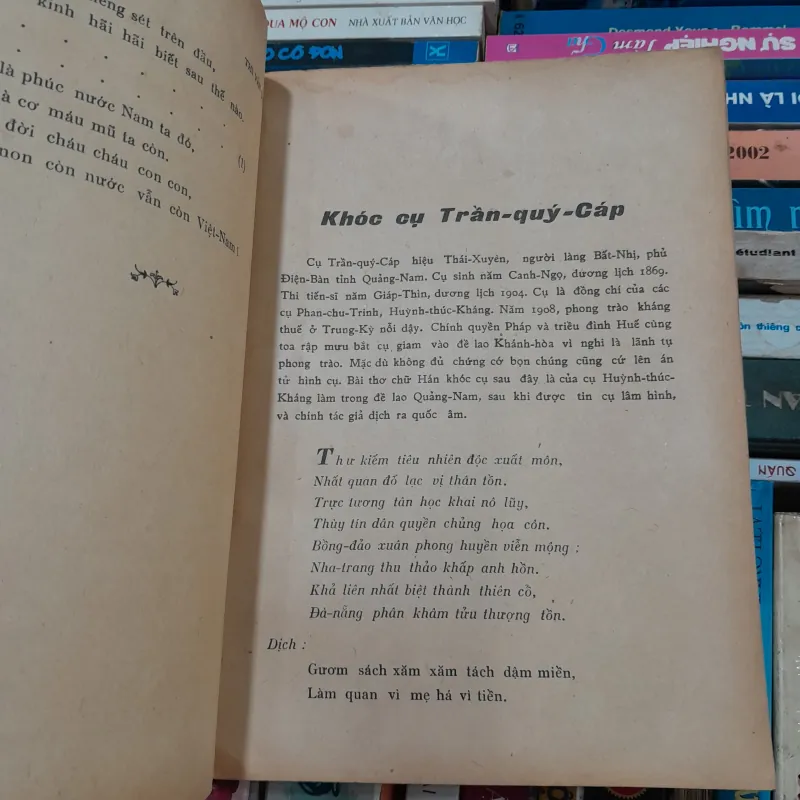 QUA MỘ CON NHÀ XUẤT BẢN VĂN HỌC
SỰ NGHIỆP
2002
étudiant
sét trên đầu,
kinh hãi hãi biết sau thế nào.
là phúc nước Nam ta đó,
cơ máu mũ ta còn.
đời cháu cháu con con,
non còn nước vẫn còn Việt-Nam !
(1)
Khóc cụ Trần-quý-Cáp
Cụ Trần-quý-Cáp hiệu Thái-Xuyên, người làng Bất-Nhị, phủ
Điện-Bàn tỉnh Quảng-Nam. Cụ sinh năm Canh-Ngọ, dương lịch 1869.
Thi tiến-sĩ năm Giáp-Thìn, dương lịch 1904. Cụ là đồng chí của các
cụ Phan-chu-Trinh, Huỳnh-thúc-Kháng. Năm 1908, phong trào kháng
thuế ở Trung-Kỳ nổi dậy. Chính quyền Pháp và triều đình Huế cùng
toa rập mưu bắt cụ giam vào đề lao Khánh-hòa vì nghi là lãnh tụ
phong trào. Mặc dù không đủ chứng cớ bọn chúng cũng cứ lên án
tử hình cụ. Bài thơ chữ Hán khóc cụ sau đây là của cụ Huỳnh-thúc-
Kháng làm trong đề lao Quảng-Nam, sau khi được tin cụ lâm hình,
và chính tác giả dịch ra quốc âm.
Thư kiếm tiêu nhiên độc xuất môn,
Nhất quan đổ lạc vị thân tồn.
Trực tương tân học khai nô lũy,
Thùy tín dân quyền chủng họa côn.
Bồng-đảo xuân phong huyền viễn mộng ;
Nha-trang thu thảo khấp anh hồn.
Khả liên nhất biệt thành thiên cổ,
Đà-nẵng phân khâm tửu thượng tồn.
Dịch :
Gươm sách xăm xăm tách dậm miền,
Làm quan vì mẹ há vì tiền.